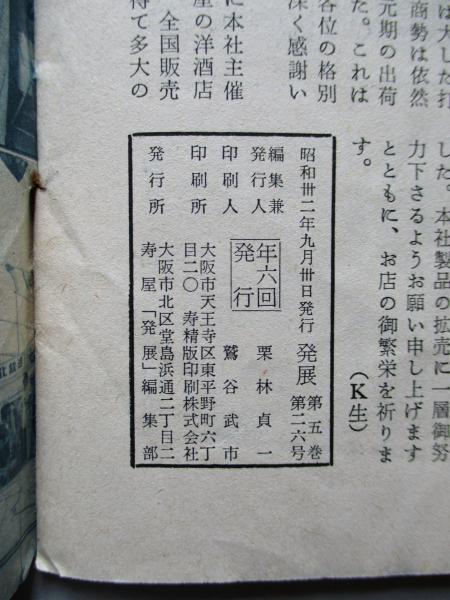 は大した打
商勢は依然
元期の出荷
た。これは
各位の格別
深く感謝い
に本社主催
全国販売
屋の洋酒店
得て多大の
した。本社製品の拡売に一層御努
力下さるようお願い申し上げます
とともに、お店の御繁栄を祈りま
す。
（K生）
昭和卅二年九月卅日発行 発展 第五巻 第二六号
編集兼発行人 栗林貞一
印刷人 鷲谷武市
年六回発行
印刷所 大阪市天王寺区東平野町六丁目二〇 寿精版印刷株式会社
発行所 大阪市北区堂島浜通二丁目二 寿屋「発展」編集部